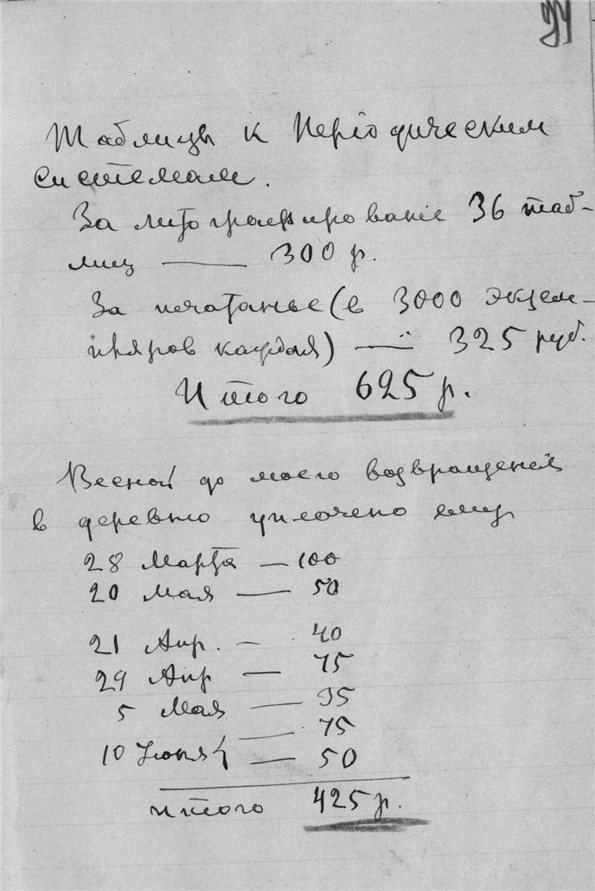 94
Таблицы к Періодическим
системам.
За литографированіе 36 таб-
лиц — 300 р.
За печатанье (в 3000 экзем-
пляров каждая) — 325 руб.
Итого 625 р.
Весной до моего возвращения
в деревню уплочено ему
28 Марта — 100
20 Мая — 50
21 Апр. — 40
29 Апр — 75
5 Мая — 35
— 75
10 Июня — 50
итого 425 р.